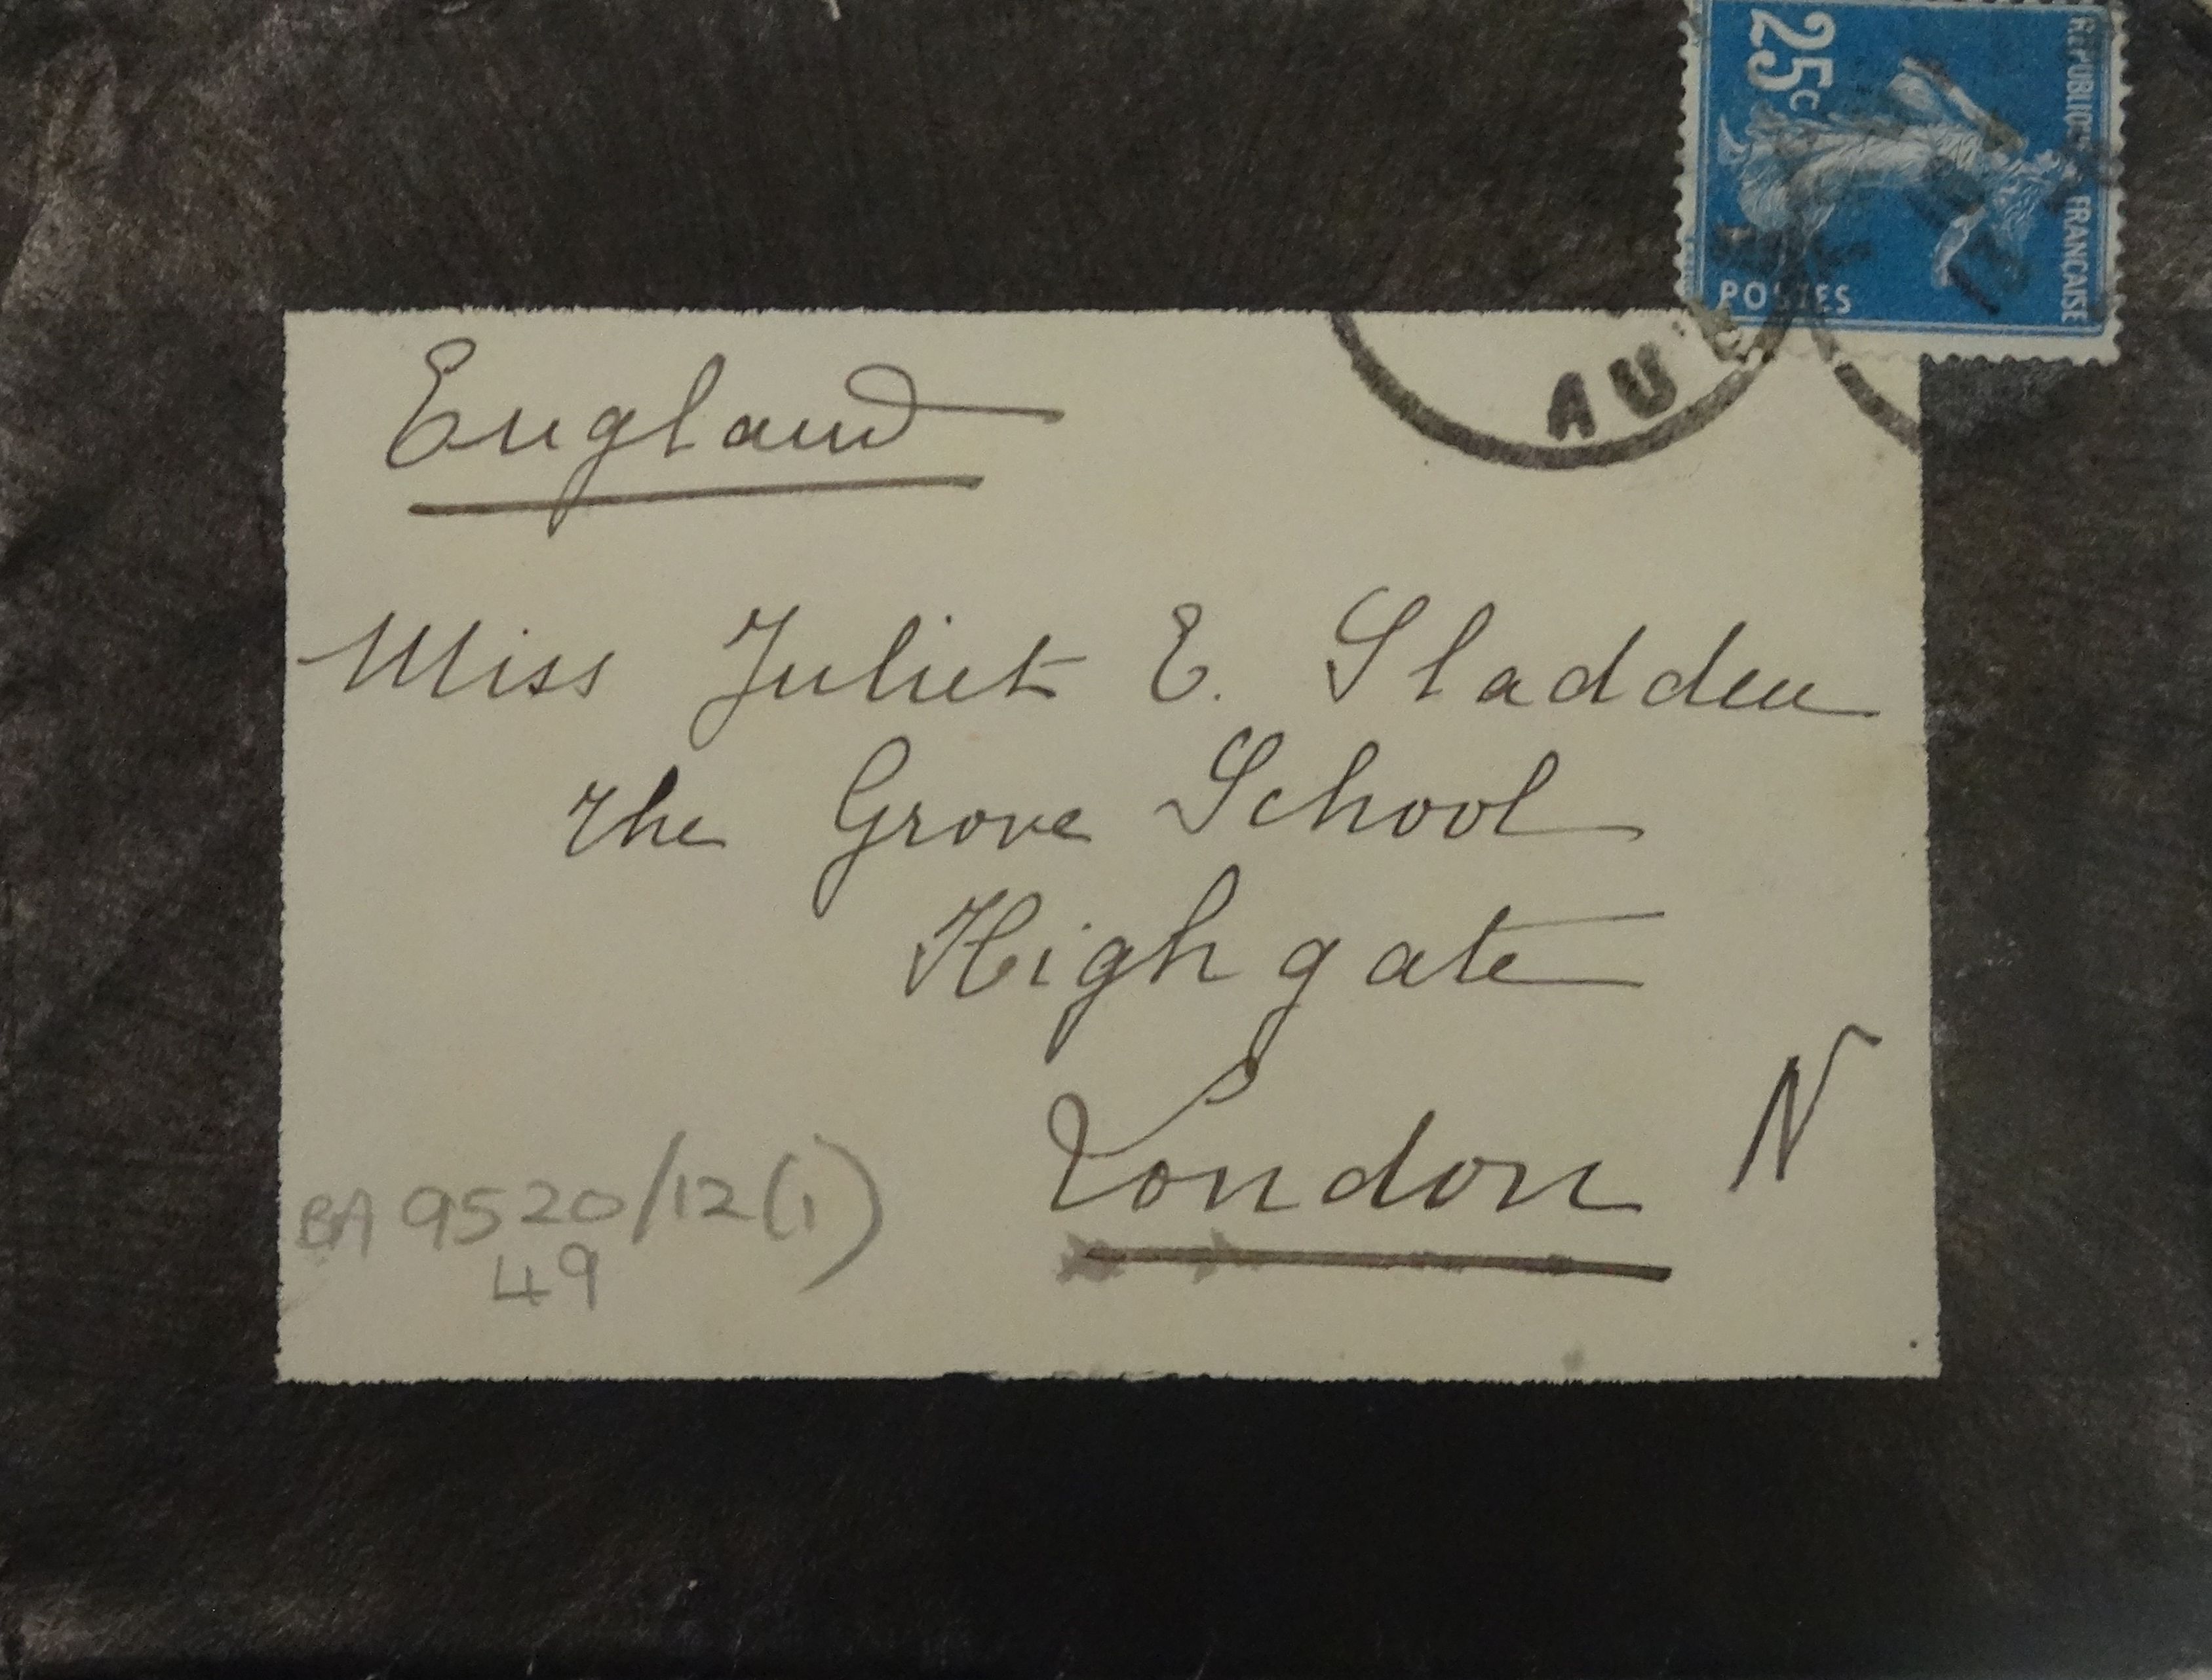 25c
RÉPUBLIQUE FRANCAISE
POSTES
AU
England
Miss Juliet E. Sladden
The Grove School
Highgate
London N
BA 9520/12(1)
49